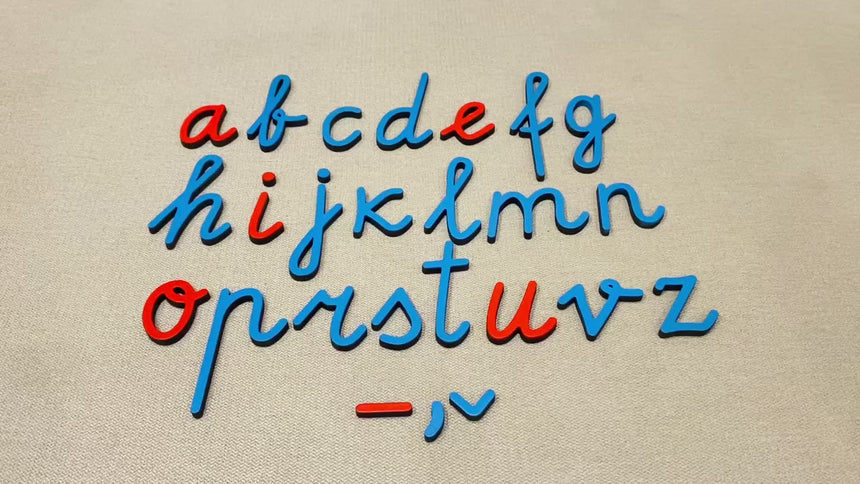 a b c d e f g
h i j k l m n
o p r s t u v z
– , ˇ